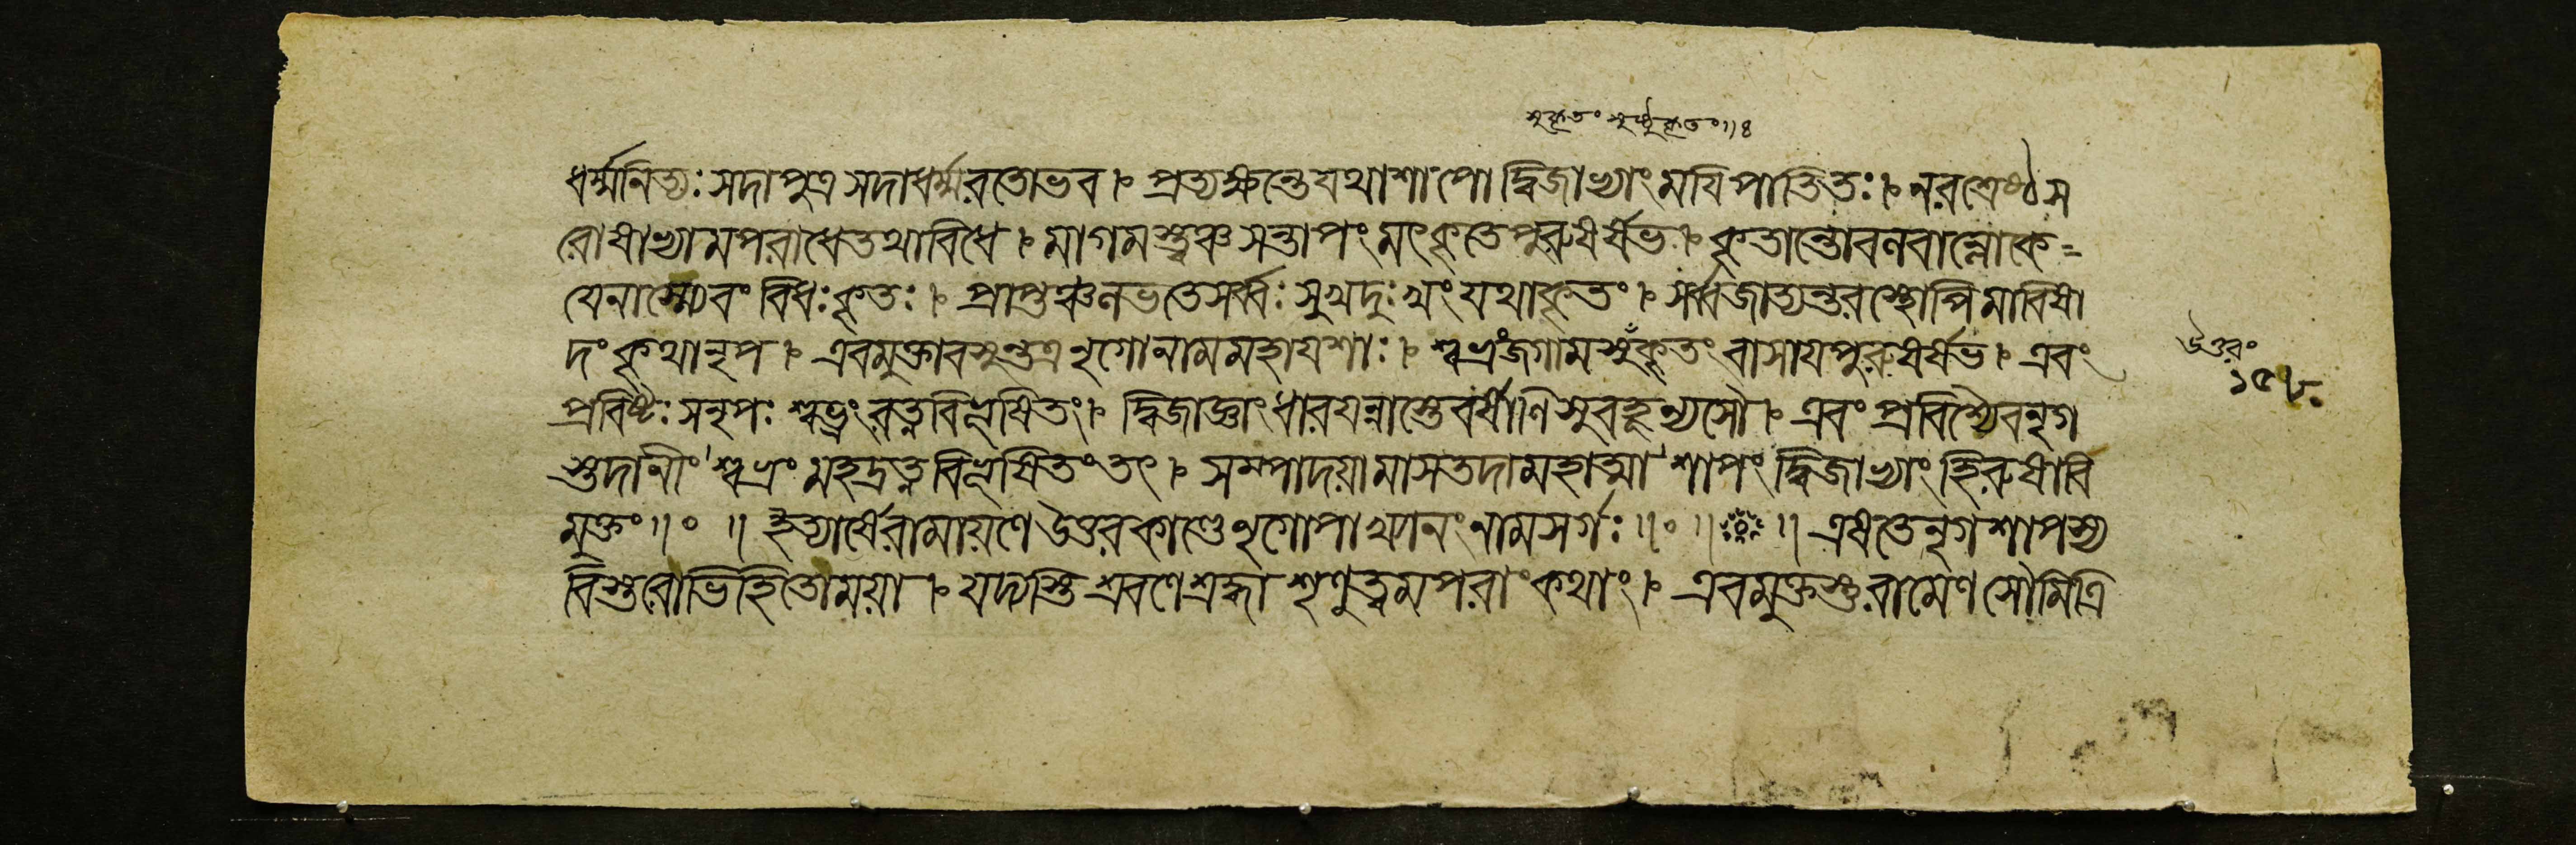 সুকৃতং সুষ্ঠুকৃতং॥৪
ধর্ম্মনিত্যঃ সদাপুত্র সদাধর্ম্মরতোভব । প্রত্যক্ষন্তেযথাশাপো দ্বিজাভ্যাং ময়িপাতিতঃ । নরশ্রেষ্ঠ স
রোষাভ্যামপরাধেতথাবিধে । মাগমস্ত্বঞ্চ সন্তাপং মৎকৃতেপুরুষর্ষভ । কৃতান্তোবলবাল্লোকে
যেনাস্ম্যেবং বিধঃকৃতঃ । প্রাপ্ত লভতেসর্ব্বঃ সুখদুঃখং যথাকৃতং । সর্ব্বজাত্যন্তর মাবিষা
দংকৃথানৃপ । এবমুক্ত্বা নৃগোনামমহাযশাঃ । শ্বভ্রংজগামসুকৃতং বাসায়পুরুষর্ষভ । এবং
প্রবিষ্টঃ সনৃপঃ শ্বভ্রং রত্নবিভূষিতং । দ্বিজাজ্ঞাং ধারয়ন্নাস্তেবর্ষাণিসুবহূন্যসৌ । এবং প্রবিশ্যৈবনৃগ
স্তদানীং শ্বভ্রং মহদ্রত্নবিভূষিতংতৎ । সম্পাদয়ামাসতদামহাত্মা শাপং দ্বিজাভ্যাং হিরুষাবি
মুক্তং॥০॥ ইত্যার্ষেরামায়ণে উত্তরকাণ্ডেনৃগোপাখ্যানং নামসর্গঃ॥০॥ ॥ এষতেনৃগশাপস্য
বিস্তরোভিহিতোময়া । যদ্যস্তি শ্রবণেশ্রদ্ধা শৃণুত্বমপরাংকথাং । এবমুক্তস্তুরামেণ সৌমিত্রি
উত্তরং
১৫৮